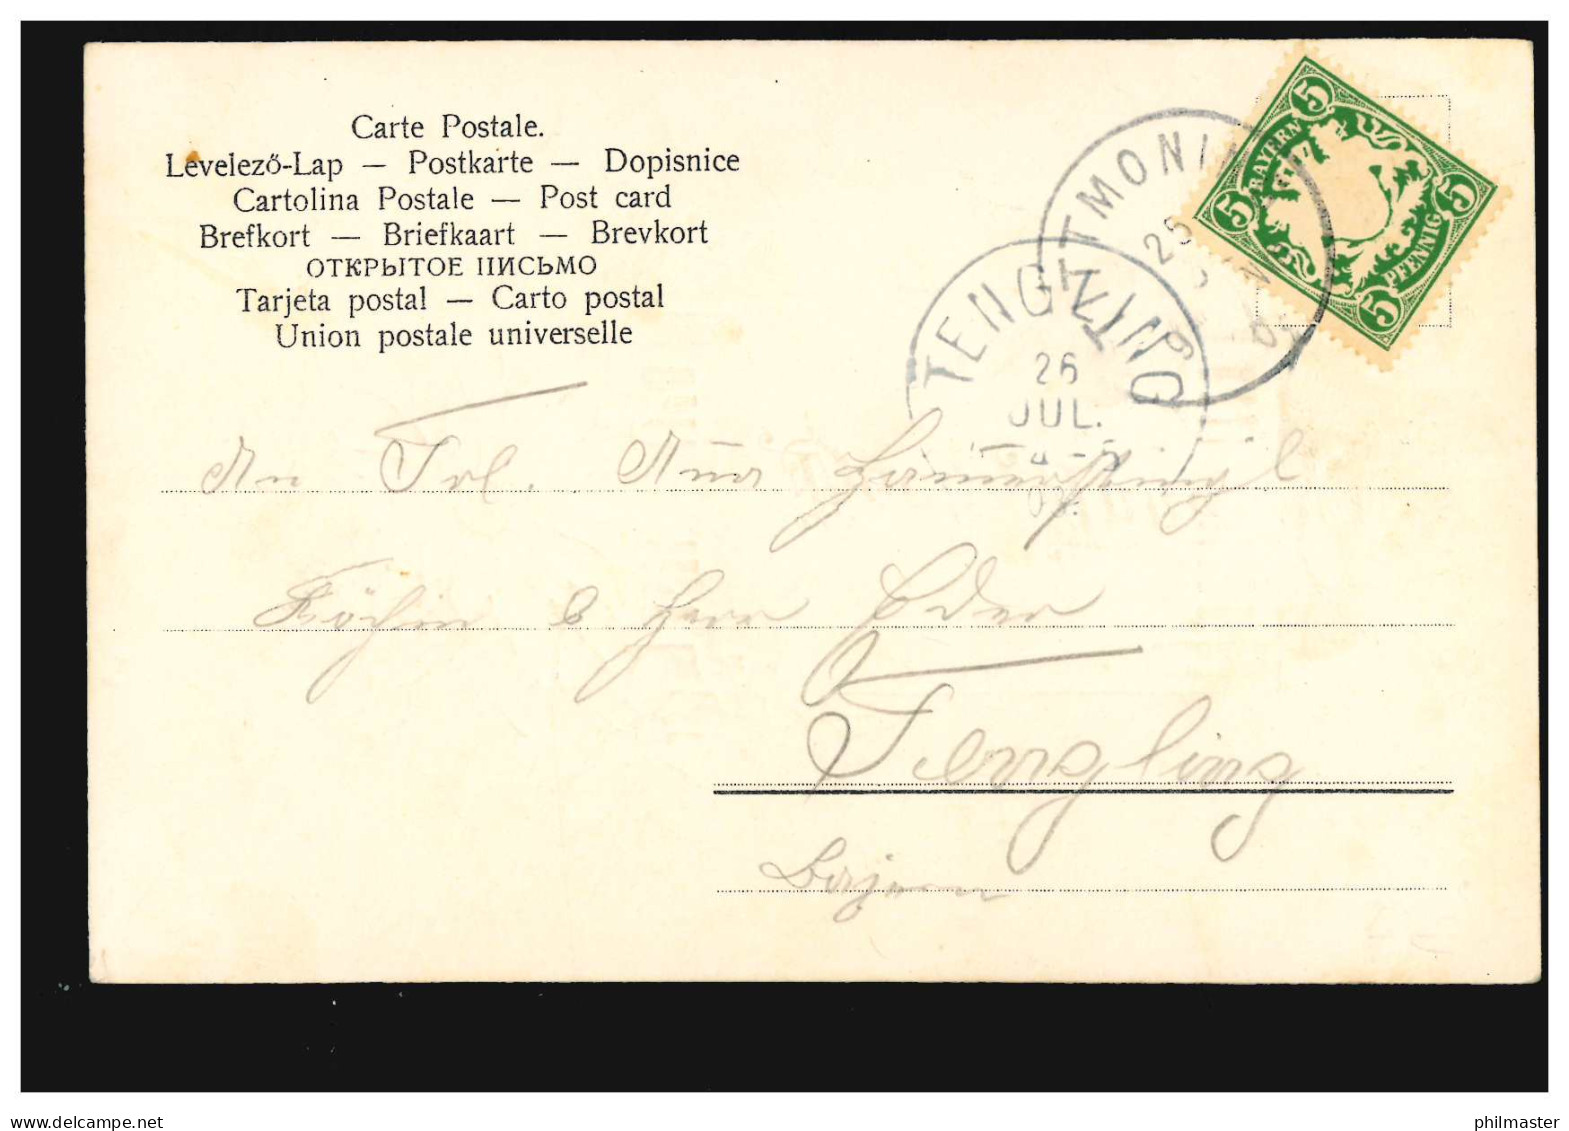 Carte Postale.
Levelező-Lap — Postkarte — Dopisnice
Cartolina Postale — Post card
Brefkort — Briefkaart — Brevkort
ОТКРЫТОЕ ПИСЬМО
Tarjeta postal — Carto postal
Union postale universelle
5 BAYERN 5
5 PFENNIG 5
TITTMONING
25
TENGLING
26
JUL.
An Frl.
Köchin b Herr Eder
Tengling
Bayern
delcampe.net
philmaster